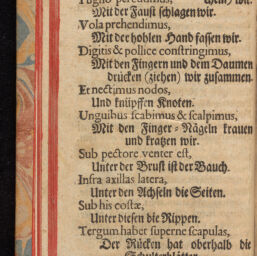 Pugno percutimus, chein) wir.
Mit der Faust schlagen wir.
Vola prehendimus,
Mit der hohlen Hand fassen wir.
Digitis & pollice constringimus,
Mit den Fingern und dem Daumen
drücken (ziehen) wir zusammen.
Et nectimus nodos,
Und knüpffen Knoten.
Unguibus scabimus & scalpimus,
Mit den Finger-Nägeln krauen
und kratzen wir.
Sub pectore venter est,
Unter der Brust ist der Bauch.
Infra axillas latera,
Unter den Achseln die Seiten.
Sub his costæ,
Unter diesen die Rippen.
Tergum habet superne scapulas,
Der Rücken hat oberhalb die
Schulterblätter